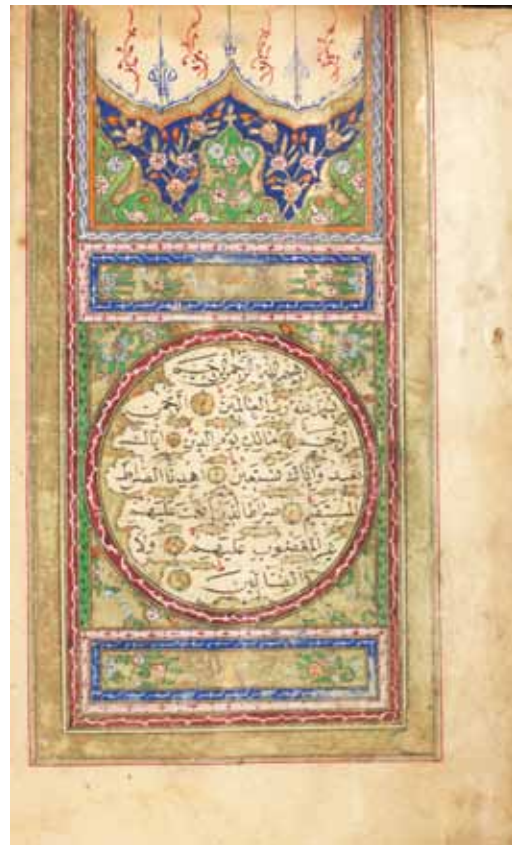 بسم الله الرحمن الرحيم
الحمد لله رب العالمين الرحمن
الرحيم مالك يوم الدين اياك
نعبد واياك نستعين اهدنا الصراط
المستقيم صراط الذين انعمت عليهم
غير المغضوب عليهم ولا
الضالين